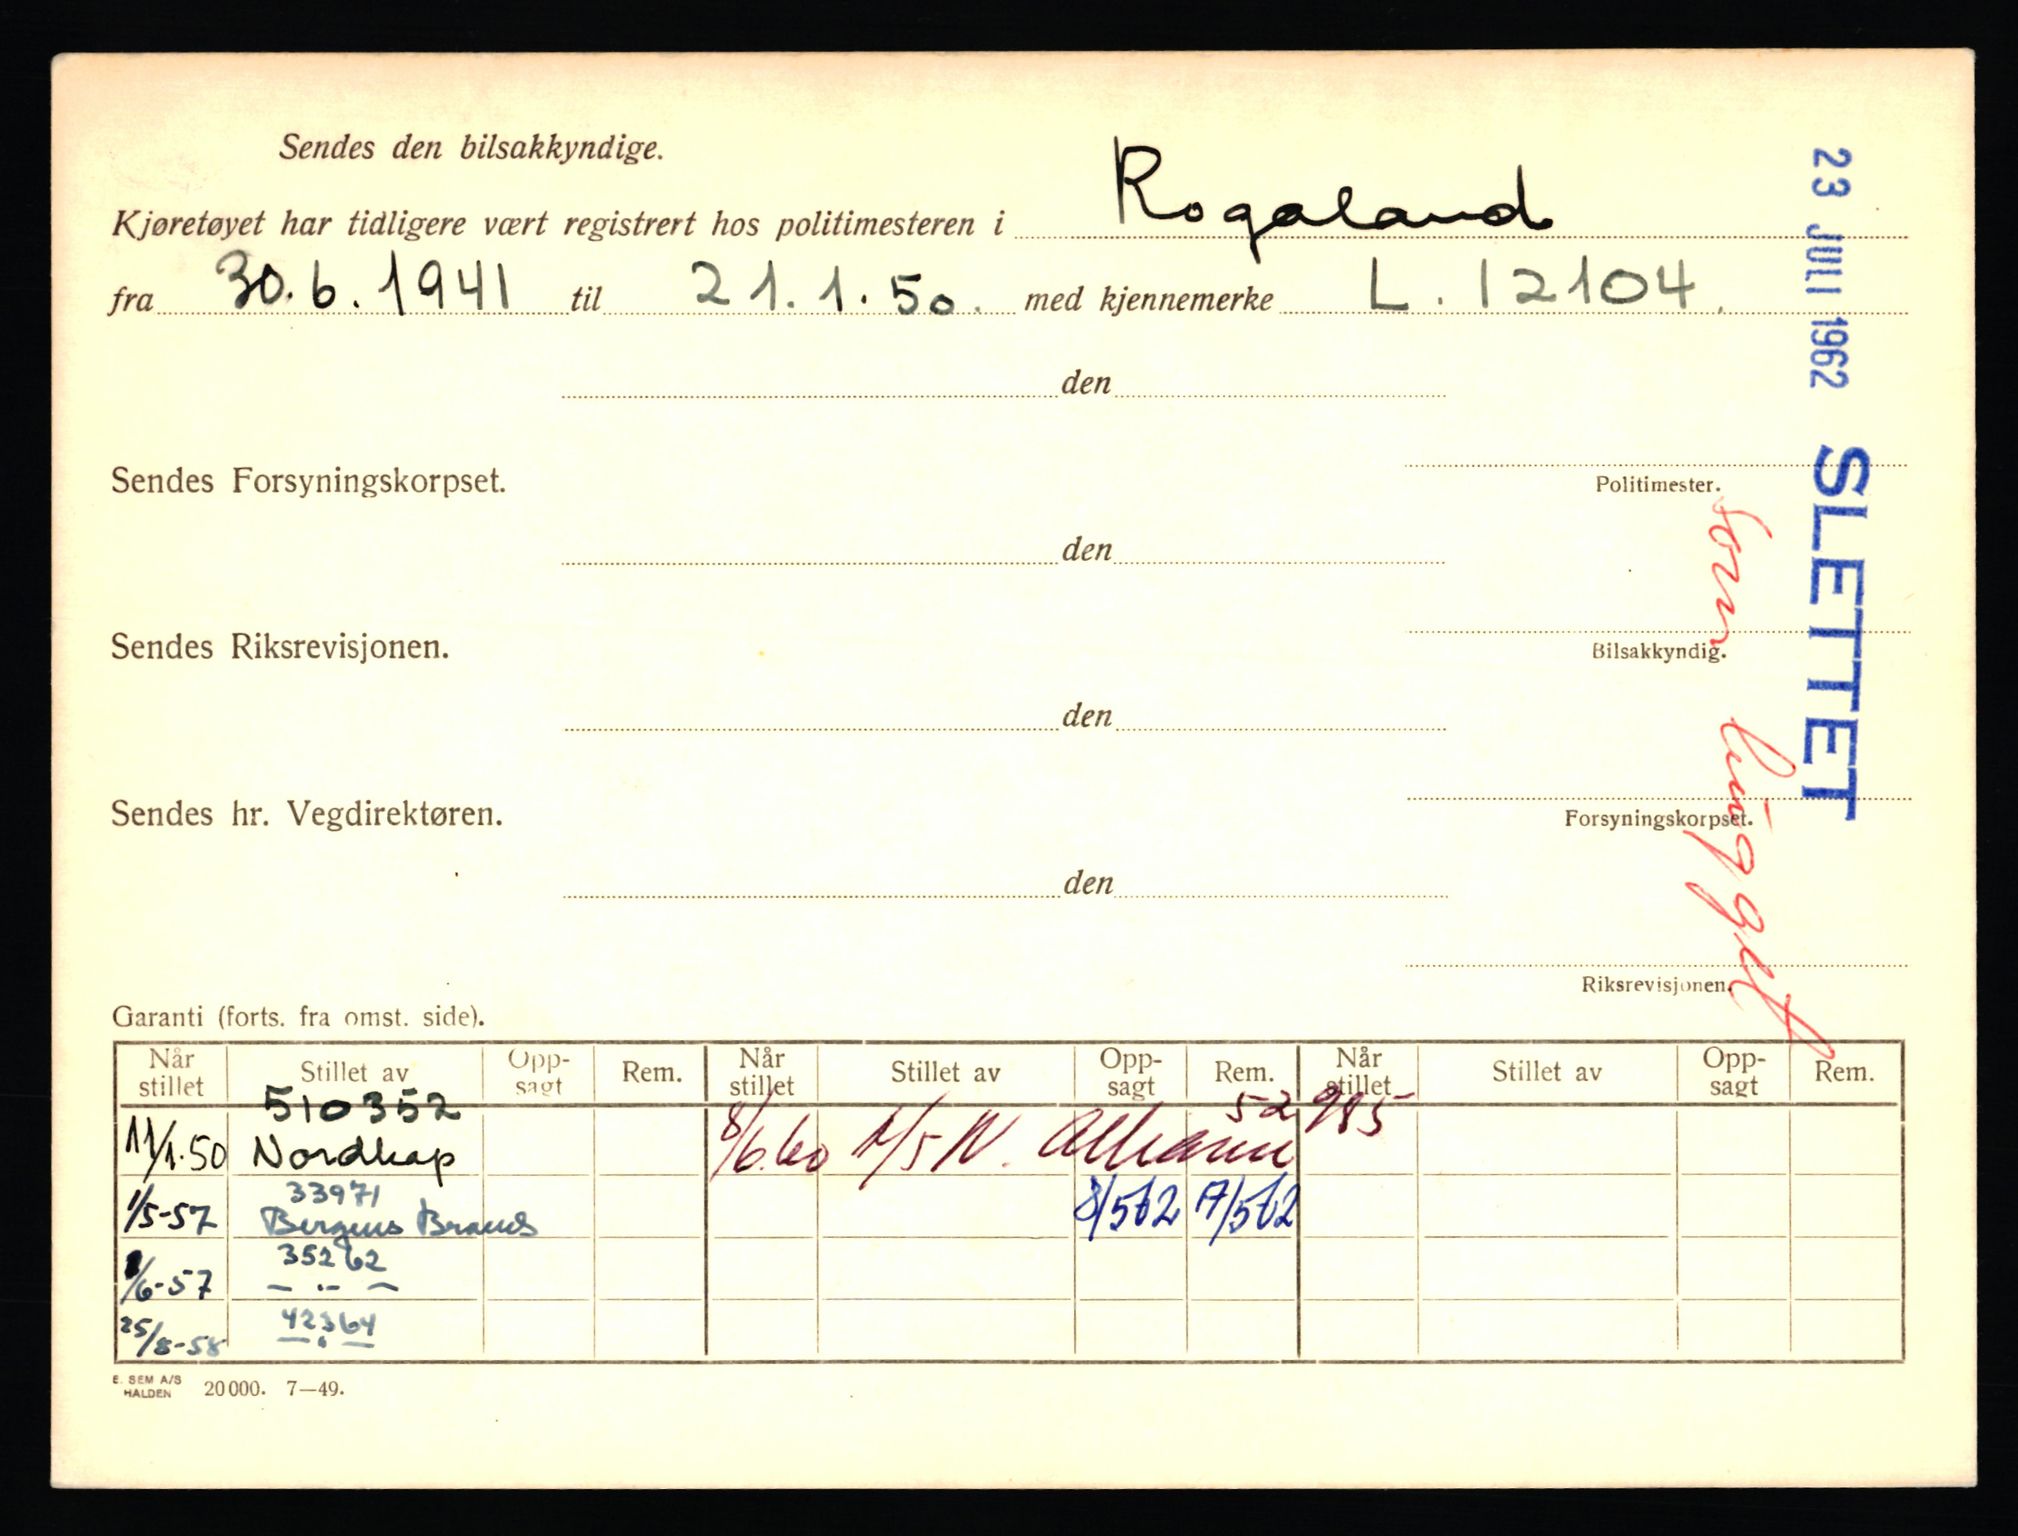 Sendes den bilsakkyndige.
Kjøretøyet har tidligere vært registrert hos politimesteren i Rogaland
fra 30.6.1941 til 21.1.50. med kjennemerke L. 12104.
den
Politimester.
Sendes Forsyningskorpset.
den
Bilsakkyndig.
Sendes Riksrevisjonen.
den
Forsyningskorpset.
Sendes hr. Vegdirektøren.
den
Riksrevisjonen.
23 JULI 1962 SLETTET
Som hugget
Garanti (forts. fra omst. side).
Når stillet Stillet av Opp-sagt Rem. Når stillet Stillet av Opp-sagt Rem. Når stillet Stillet av Opp-sagt Rem.
510352 52985
11/1.50 Nordkap 8/6.60 N. Alliance
33971
1/5-57 Bergens Brands 8/562 17/562
35262
1/6-57 — „ —
42364
25/8-58 — „ —
E. SEM A/S
HALDEN 20000. 7—49.